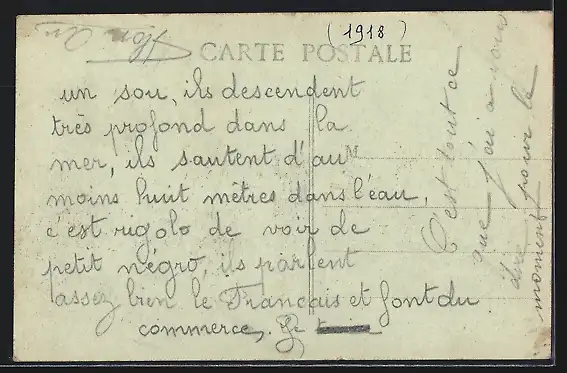 (1918)
CARTE POSTALE
un sou, ils descendent
très profond dans la
mer, ils sautent d'au
moins huit mètres dans l'eau,
c'est rigolo de voir de
petit négro, ils parlent
assez bien le Francais et font du
commerce,. Je
C'est tout ce
que j'ai a vous
dire pour le
moment